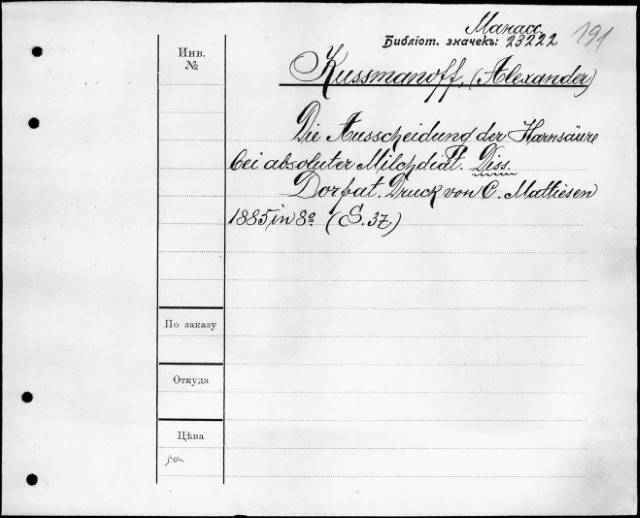 Манасс.
191
Библіот. значекъ: 23222
Инв.
№
Kussmanoff, (Alexander)
Die Ausscheidung der Harnsäure
bei absoluter Milchdiät. Diss.
Dorpat. Druck von C. Mattiesen
1885, in 8º (S. 37.)
По заказу
Откуда
Цѣна